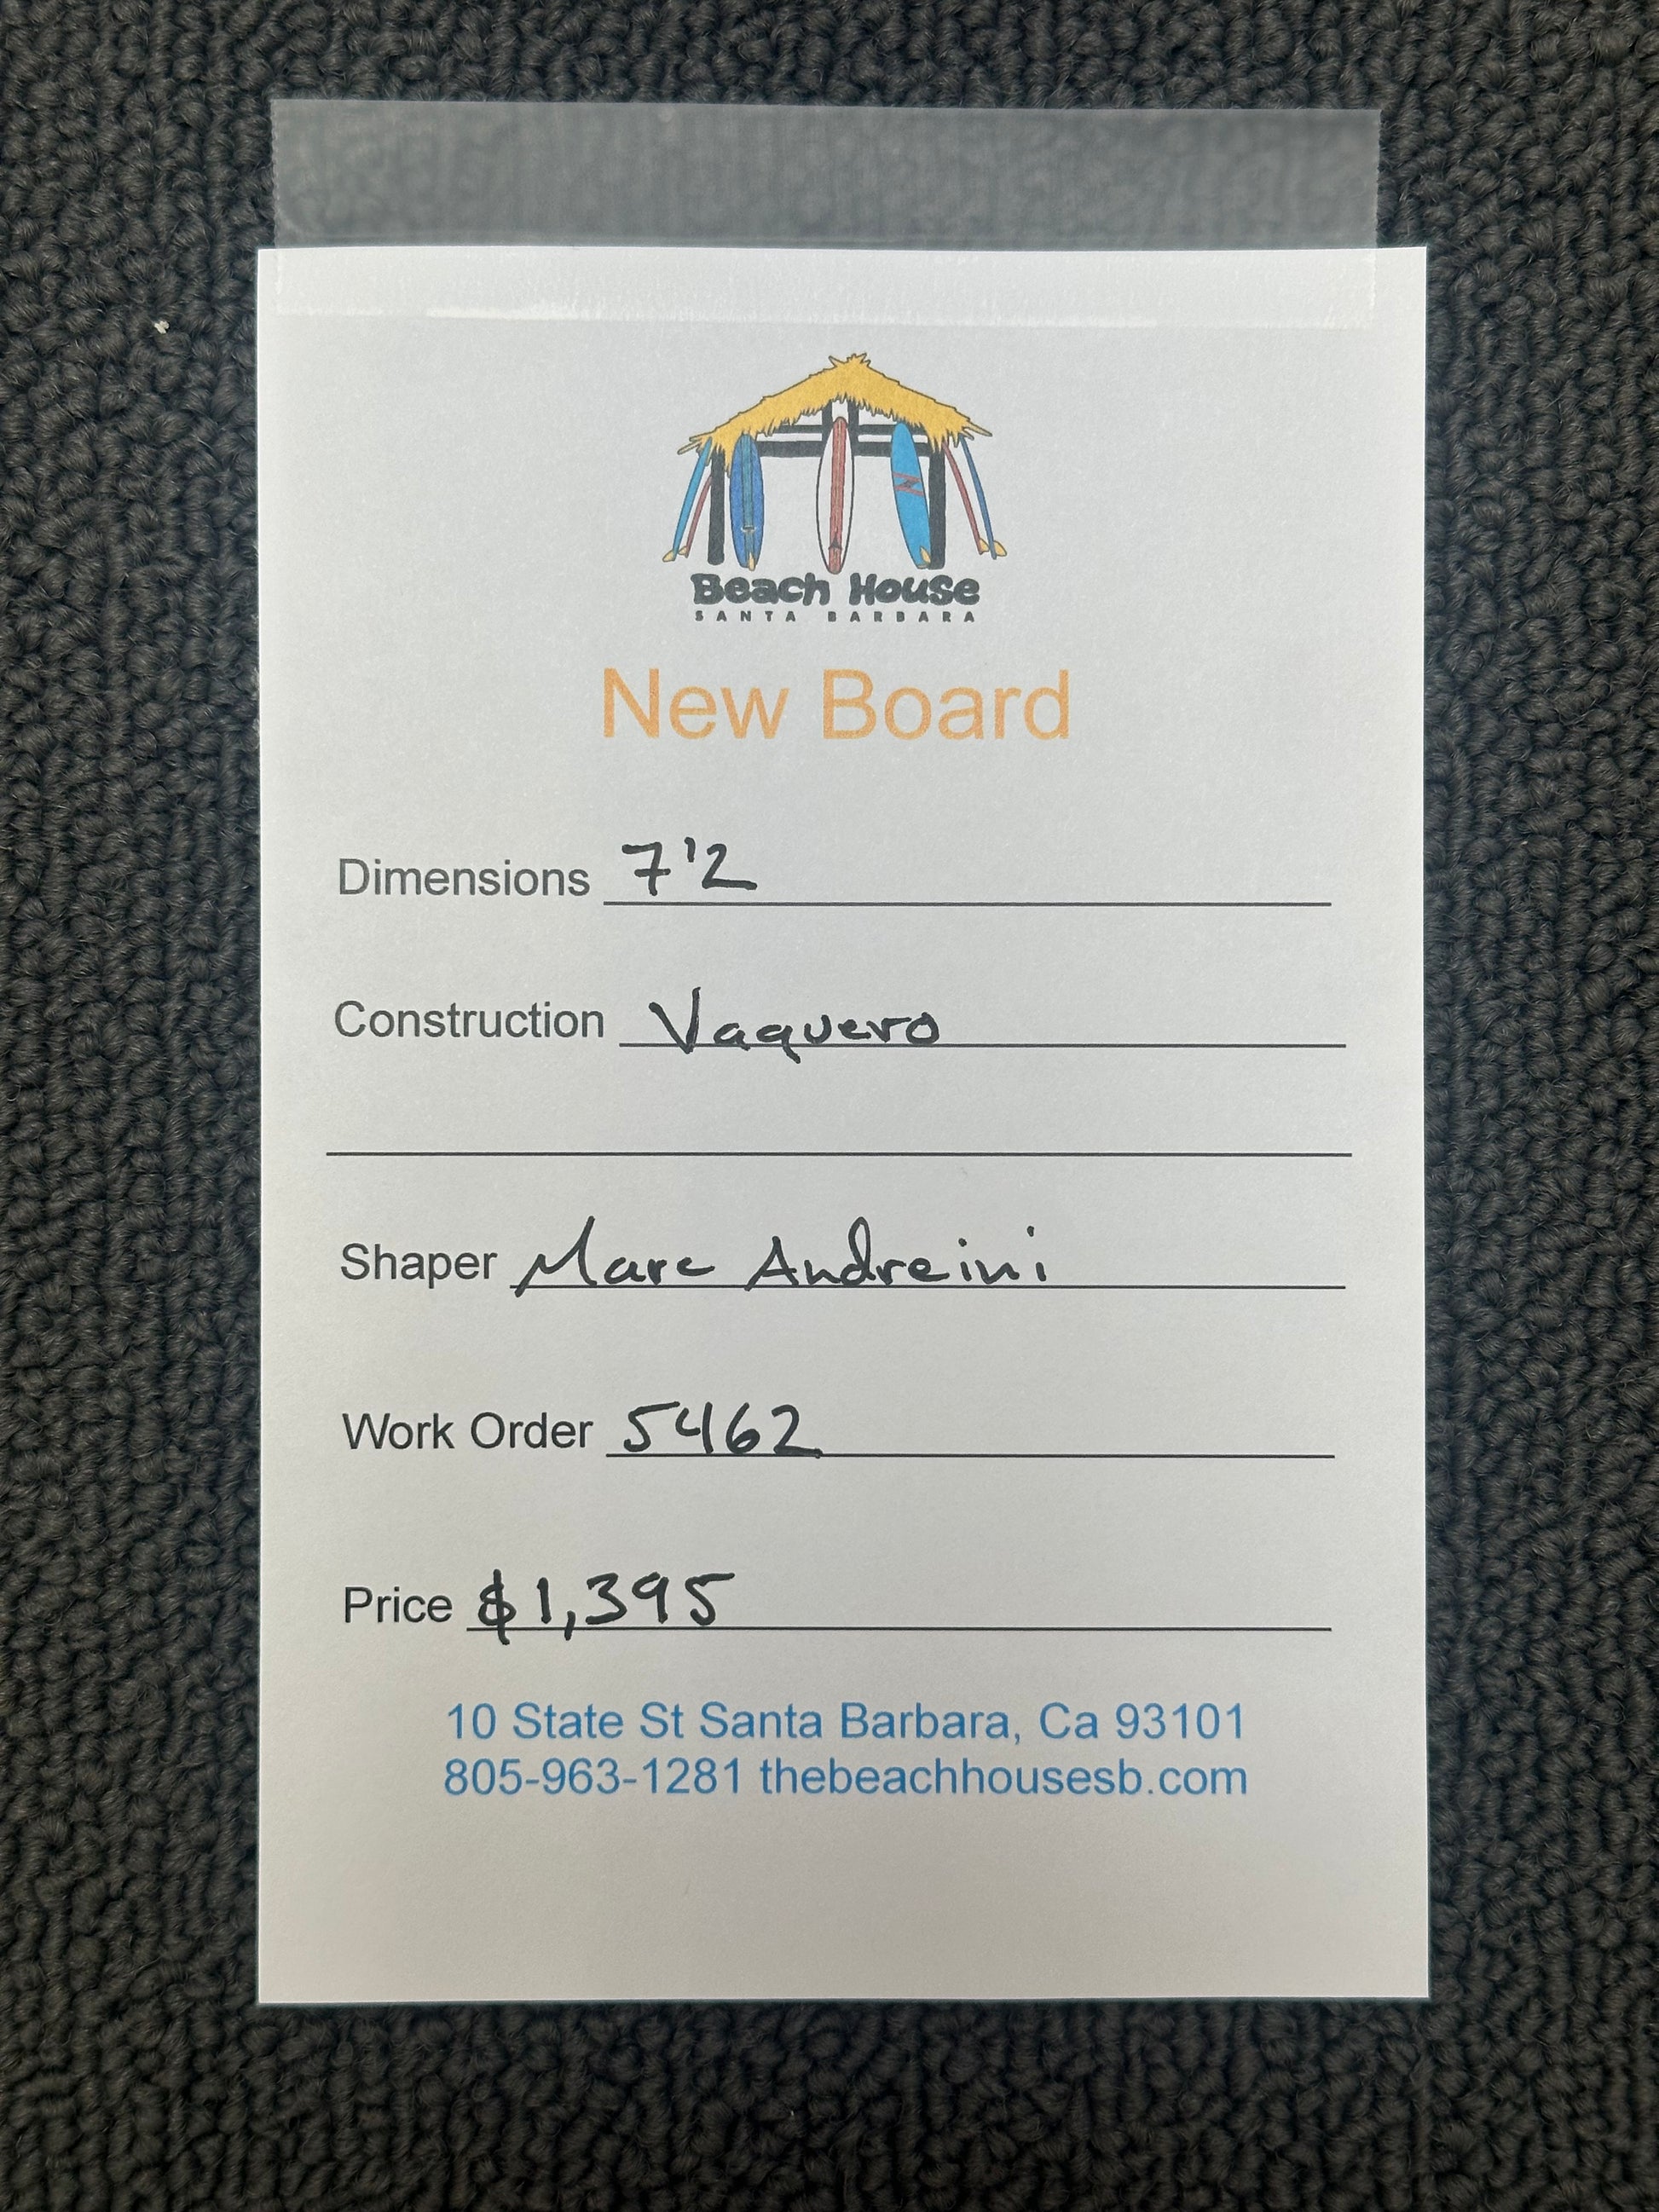 Beach House
SANTA BARBARA
New Board
Dimensions 7'2
Construction Vaquero
Shaper Marc Andreini
Work Order 5462
Price $1,395
10 State St Santa Barbara, Ca 93101
805-963-1281 thebeachhousesb.com